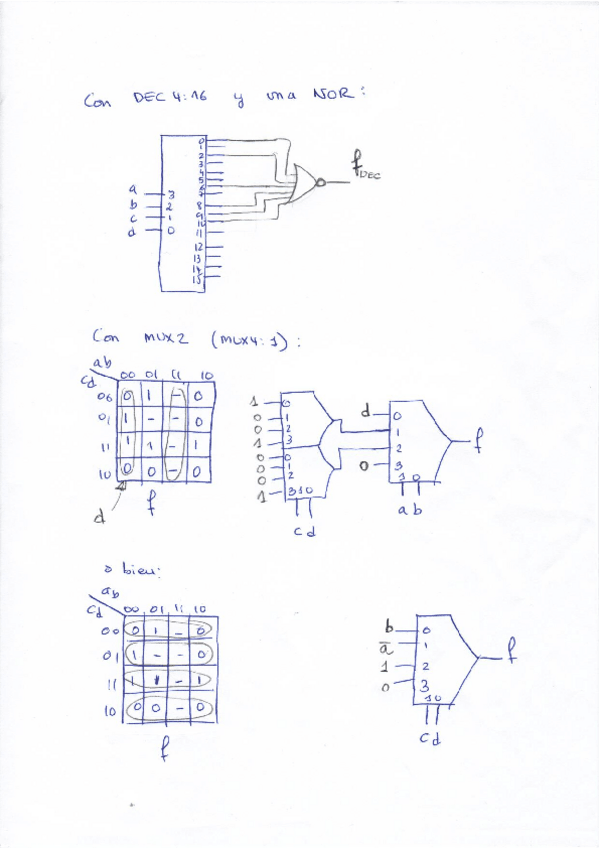 Con DEC 4:16 y una NOR:
0
1
2
3
4
5
6
7
8
9
10
11
12
13
14
15
a 3
b 2
c 1
d 0
f DEC
Con MUX2 (MUX4:1):
ab
cd 00 01 11 10
00 0 1 - 0
01 1 - - 0
11 1 1 - 1
10 0 0 - 0
d
f
1 0
0 1
0 2
1 3
0 0
0 1
0 2
1 3 1 0
c d
d 0
1
2
0 3
1 0
a b
f
o bien:
ab
cd 00 01 11 10
00 0 1 - 0
01 1 - - 0
11 1 1 - 1
10 0 0 - 0
f
b 0
a̅ 1
1 2
0 3
1 0
c d
f